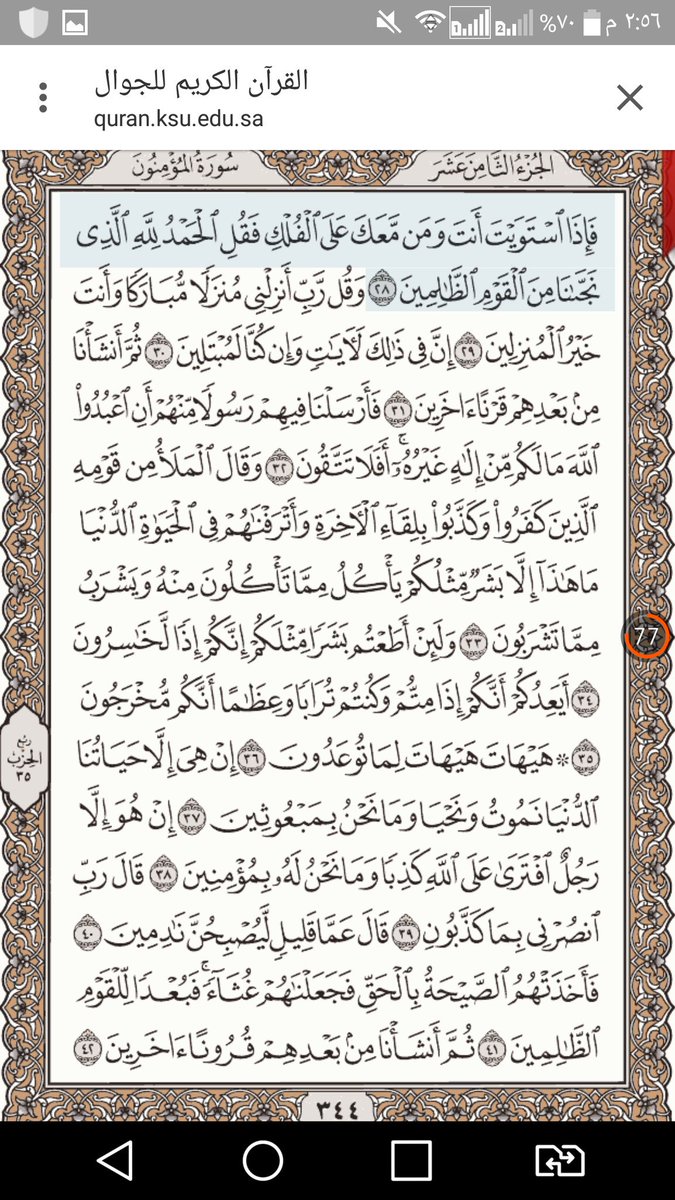 ٢:٥٦ م ٧٠% 2 1
القرآن الكريم للجوال
quran.ksu.edu.sa
الجُزْءُ الثَّامِنَ عَشَرَ
سُورَةُ المُؤْمِنُونَ
فَإِذَا ٱسْتَوَيْتَ أَنتَ وَمَن مَّعَكَ عَلَى ٱلْفُلْكِ فَقُلِ ٱلْحَمْدُ لِلَّهِ ٱلَّذِى
نَجَّىٰنَا مِنَ ٱلْقَوْمِ ٱلظَّٰلِمِينَ ٢٨ وَقُل رَّبِّ أَنزِلْنِى مُنزَلًا مُّبَارَكًا وَأَنتَ
خَيْرُ ٱلْمُنزِلِينَ ٢٩ إِنَّ فِى ذَٰلِكَ لَءَايَٰتٍ وَإِن كُنَّا لَمُبْتَلِينَ ٣٠ ثُمَّ أَنشَأْنَا
مِنۢ بَعْدِهِمْ قَرْنًا ءَاخَرِينَ ٣١ فَأَرْسَلْنَا فِيهِمْ رَسُولًا مِّنْهُمْ أَنِ ٱعْبُدُوا۟
ٱللَّهَ مَا لَكُم مِّنْ إِلَٰهٍ غَيْرُهُۥٓ ۚ أَفَلَا تَتَّقُونَ ٣٢ وَقَالَ ٱلْمَلَأُ مِن قَوْمِهِ
ٱلَّذِينَ كَفَرُوا۟ وَكَذَّبُوا۟ بِلِقَآءِ ٱلْءَاخِرَةِ وَأَتْرَفْنَٰهُمْ فِى ٱلْحَيَوٰةِ ٱلدُّنْيَا
مَا هَٰذَآ إِلَّا بَشَرٌ مِّثْلُكُمْ يَأْكُلُ مِمَّا تَأْكُلُونَ مِنْهُ وَيَشْرَبُ
مِمَّا تَشْرَبُونَ ٣٣ وَلَئِنْ أَطَعْتُم بَشَرًا مِّثْلَكُمْ إِنَّكُمْ إِذًا لَّخَٰسِرُونَ
77
٣٤ أَيَعِدُكُمْ أَنَّكُمْ إِذَا مِتُّمْ وَكُنتُمْ تُرَابًا وَعِظَٰمًا أَنَّكُم مُّخْرَجُونَ
٣٥ ۞ هَيْهَاتَ هَيْهَاتَ لِمَا تُوعَدُونَ ٣٦ إِنْ هِىَ إِلَّا حَيَاتُنَا
رُبْعُ
الحِزْبِ
٣٥
ٱلدُّنْيَا نَمُوتُ وَنَحْيَا وَمَا نَحْنُ بِمَبْعُوثِينَ ٣٧ إِنْ هُوَ إِلَّا
رَجُلٌ ٱفْتَرَىٰ عَلَى ٱللَّهِ كَذِبًا وَمَا نَحْنُ لَهُۥ بِمُؤْمِنِينَ ٣٨ قَالَ رَبِّ
ٱنصُرْنِى بِمَا كَذَّبُونِ ٣٩ قَالَ عَمَّا قَلِيلٍ لَّيُصْبِحُنَّ نَٰدِمِينَ ٤٠
فَأَخَذَتْهُمُ ٱلصَّيْحَةُ بِٱلْحَقِّ فَجَعَلْنَٰهُمْ غُثَآءً ۚ فَبُعْدًا لِّلْقَوْمِ
ٱلظَّٰلِمِينَ ٤١ ثُمَّ أَنشَأْنَا مِنۢ بَعْدِهِمْ قُرُونًا ءَاخَرِينَ ٤٢
٣٤٤